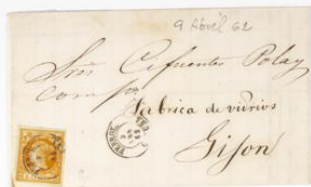 9 Abril 62
Sres Cifuentes Pola y
comp.
Fabrica de vidrios
Gijon